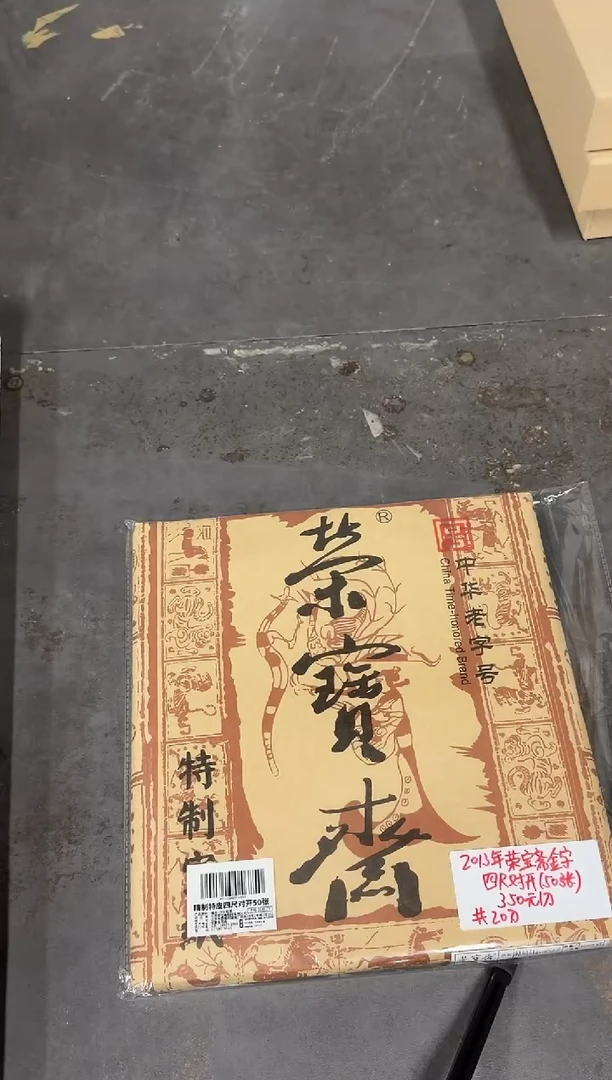 榮寶齋
®
中华老字号
China Time-honored Brand
特制
精制特皮四尺对开50张
2013年荣宝斋金字
四尺对开(50张)
350元/刀
共20刀